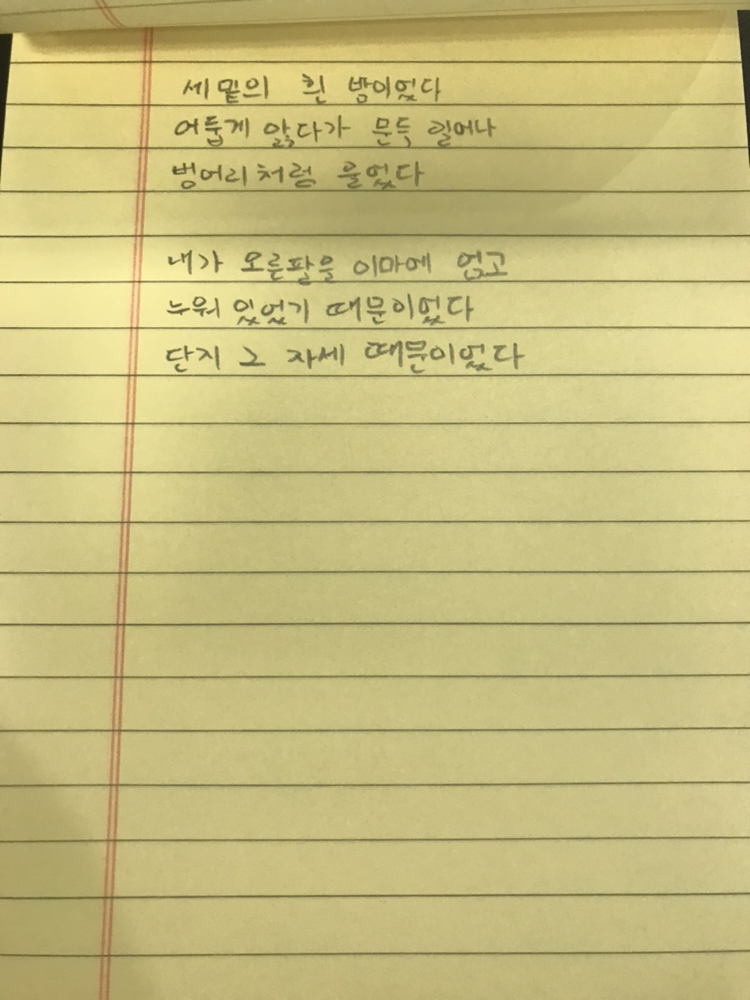 세밑의 흰 밤이었다
어둡게 앓다가 문득 일어나
벙어리처럼 울었다
내가 오른팔을 이마에 얹고
누워 있었기 때문이었다
단지 그 자세 때문이었다